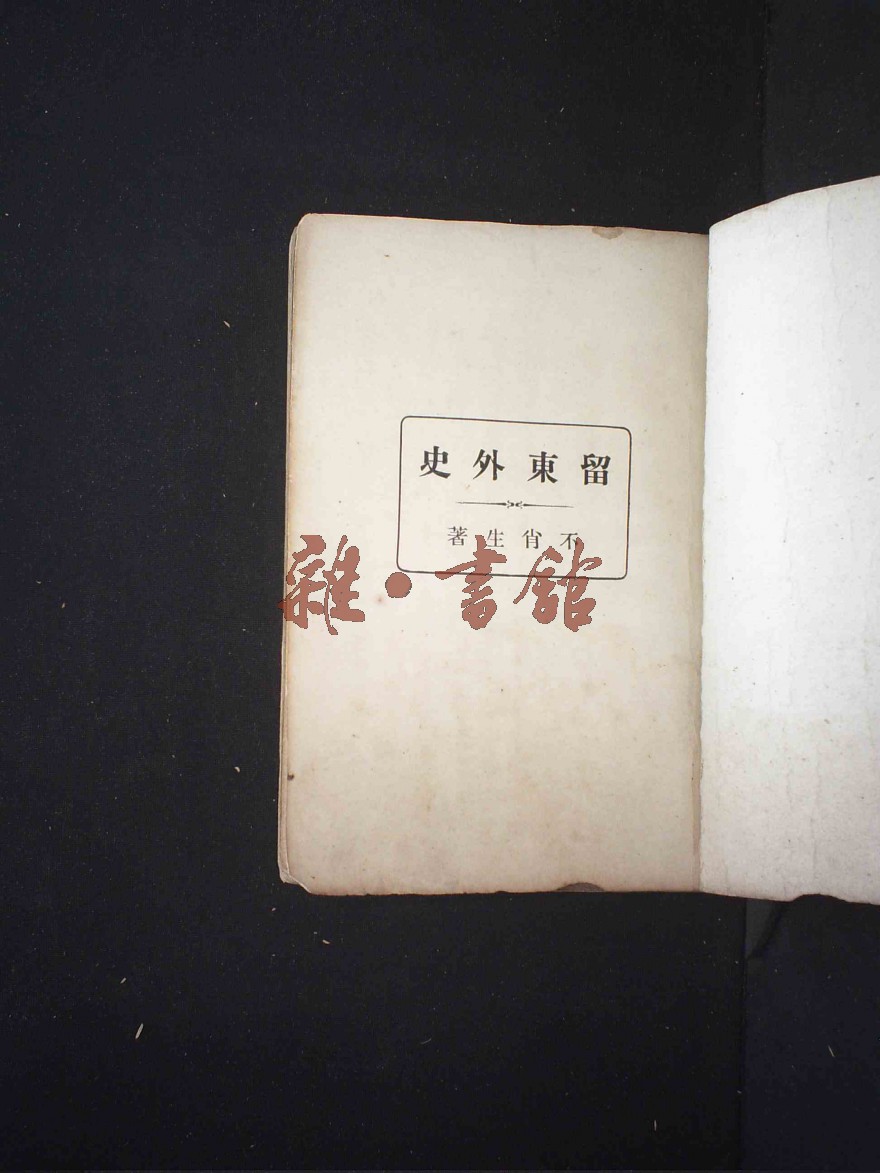 留東外史
不肖生著
雜·書館